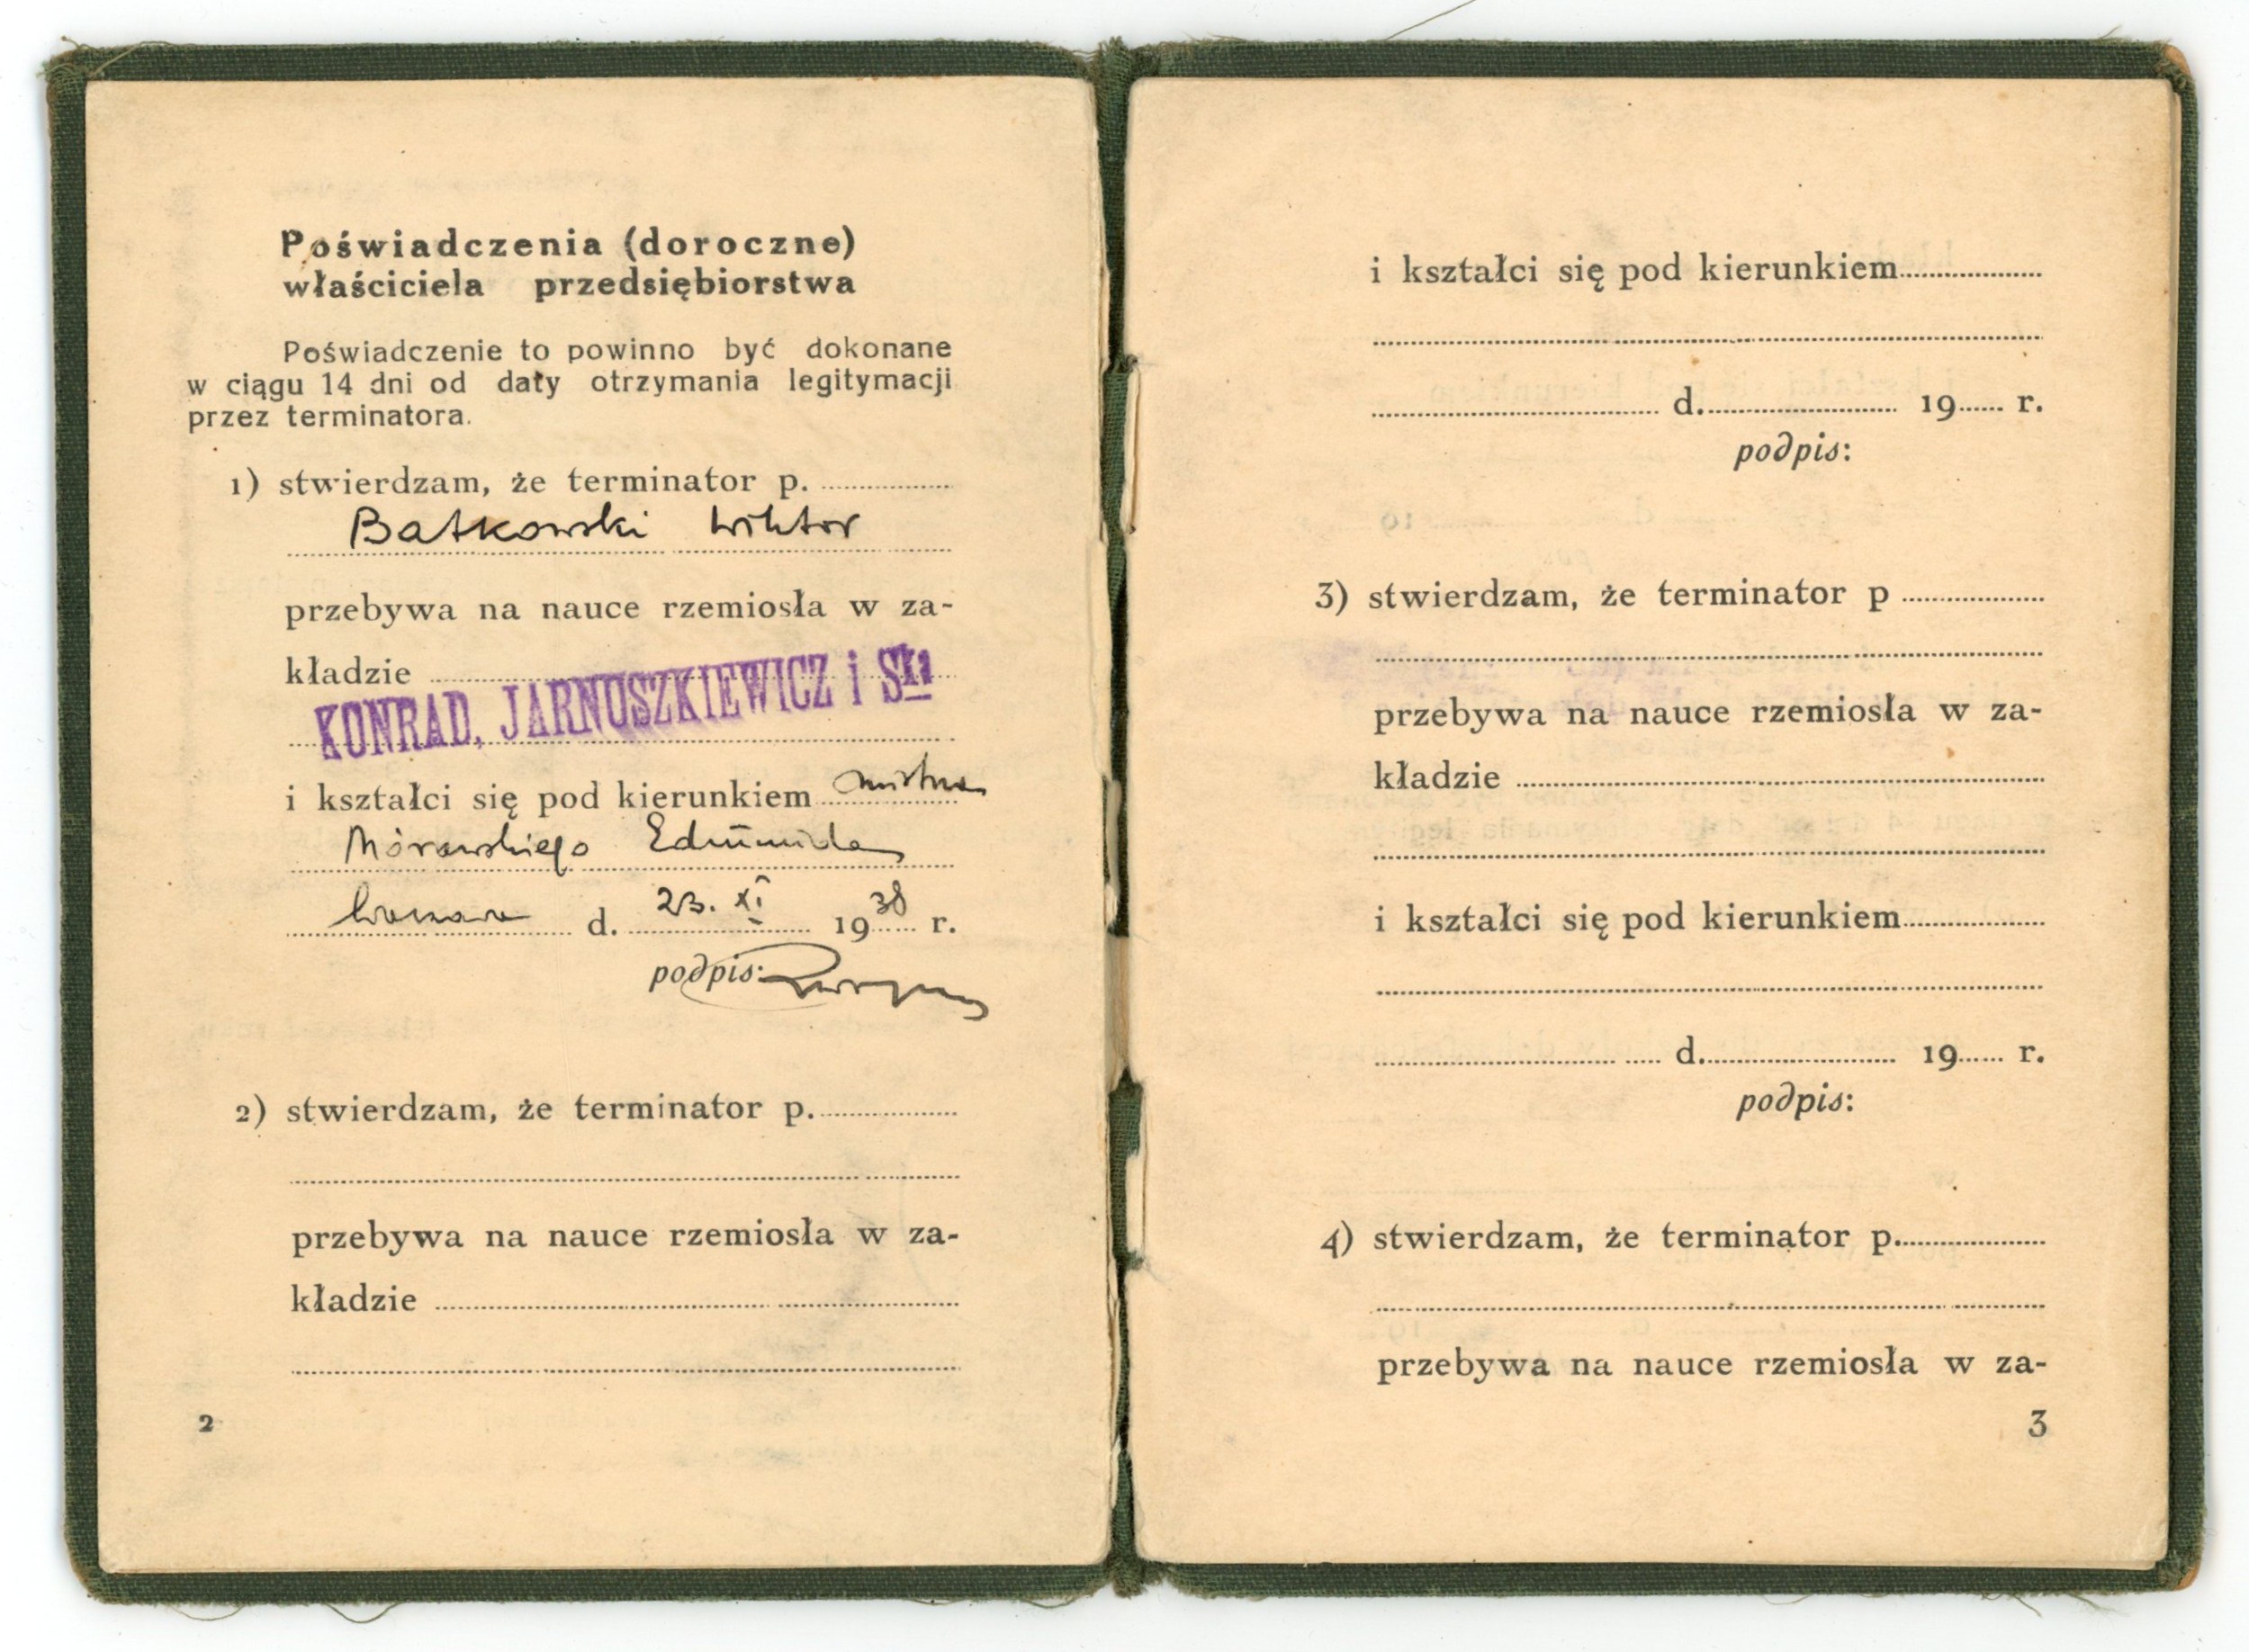 Poświadczenia (doroczne)
właściciela przedsiębiorstwa
Poświadczenie to powinno być dokonane
w ciągu 14 dni od daty otrzymania legitymacji
przez terminatora.
1) stwierdzam, że terminator p. ..........
Batkowski Wiktor
przebywa na nauce rzemiosła w za-
kładzie ..........
KONRAD, JARNUSZKIEWICZ i Ska
i kształci się pod kierunkiem mistrza
Morawskiego Edmunda
Warszawa d. 23. XI 1938 r.
podpis:
2) stwierdzam, że terminator p. ..........
przebywa na nauce rzemiosła w za-
kładzie ..........
2
i kształci się pod kierunkiem ..........
.......... d. .......... 19...... r.
podpis:
3) stwierdzam, że terminator p ..........
przebywa na nauce rzemiosła w za-
kładzie ..........
i kształci się pod kierunkiem ..........
.......... d. .......... 19...... r.
podpis:
4) stwierdzam, że terminator p. ..........
przebywa na nauce rzemiosła w za-
3